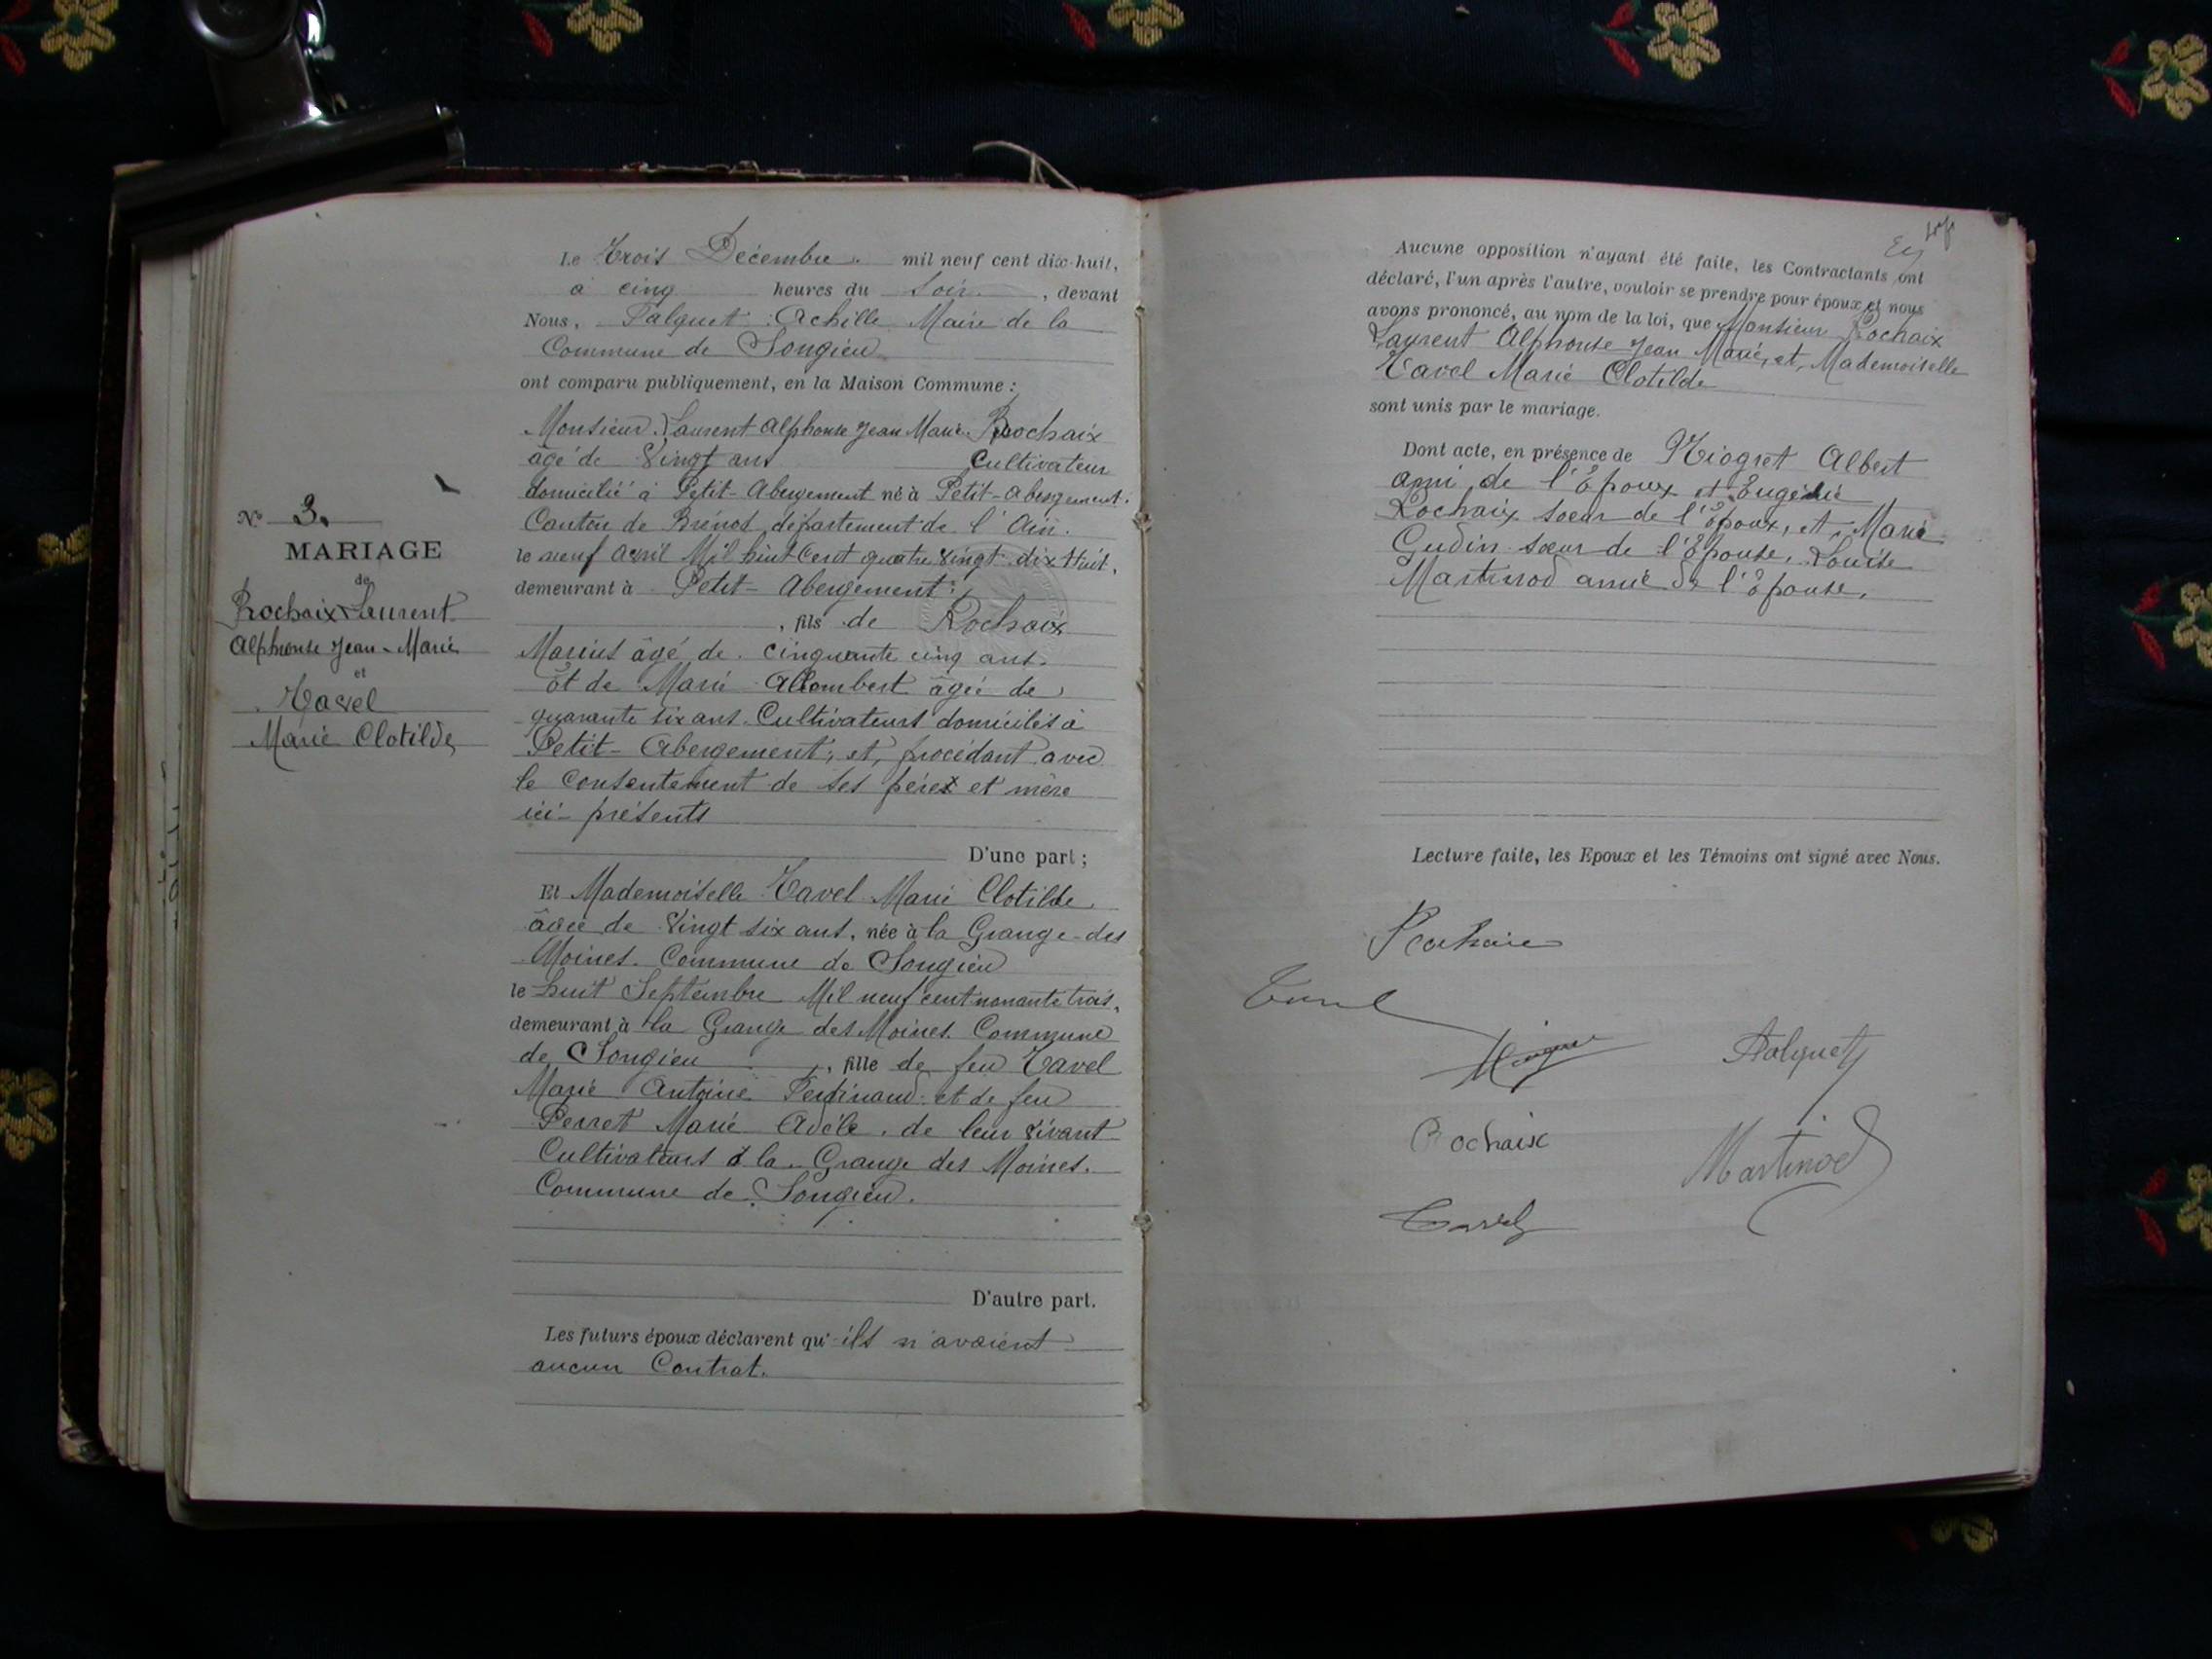 Le Trois Décembre mil neuf cent dix-huit,
à cinq heures du soir, devant
Nous, Palquet Achille Maire de la
Commune de Songieu
ont comparu publiquement, en la Maison Commune :
Monsieur Laurent Alphonse Jean Marie Rochaix
âgé de Vingt ans Cultivateur
domicilié à Petit-Abergement né à Petit-Abergement.
Canton de Brénod, département de l'Ain.
le neuf avril Mil huit Cent quatre Vingt dix Huit,
demeurant à Petit-Abergement ;
, fils de Rochaix
Marius âgé de cinquante cinq ans.
et de Marie Allombert âgée de
quarante six ans. Cultivateurs domiciliés à
Petit-Abergement ; et, procédant avec
le Consentement de ses pères et mère
ici-présents
D'une part ;
Et Mademoiselle Tavel Marie Clotilde,
âgée de Vingt six ans, née à la Grange-des
Moines. Commune de Songieu
le huit Septembre Mil neuf cent nonante trois,
demeurant à la Grange des Moines. Commune
de Songieu, fille de feu Tavel
Marie Antoine Ferdinand et de feu
Perret Marie Adèle, de leur Vivant
Cultivateurs à la Grange des Moines.
Commune de Songieu.
D'autre part.
Les futurs époux déclarent qu'ils n'avaient
aucun Contrat.
N° 3.
MARIAGE
de
Rochaix Laurent
Alphonse Jean-Marie
et
Tavel
Marie Clotilde
Aucune opposition n'ayant été faite, les Contractants ont
déclaré, l'un après l'autre, vouloir se prendre pour époux et nous
avons prononcé, au nom de la loi, que Monsieur Rochaix
Laurent Alphonse Jean Marie, et, Mademoiselle
Tavel Marie Clotilde
sont unis par le mariage.
Dont acte, en présence de Miogret Albert
ami de l'Epoux et Eugénie
Rochaix soeur de l'Epoux, et Marie
Gudin soeur de l'Epouse, Louise
Martinod amie de l'Epouse.
Lecture faite, les Epoux et les Témoins ont signé avec Nous.
Rochaix
Tavel
Palquet
Rochaix
Martinod
Tavel